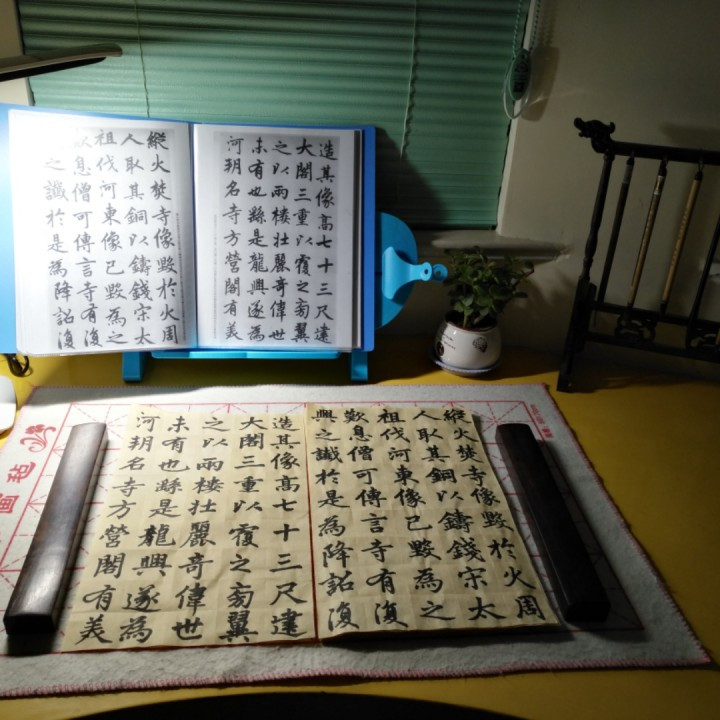 造其像高七十三尺建
大閣三重以覆之旁翼
之以兩樓壯麗奇偉世
未有也繇是龍興遂為
河朔名寺方營閣有美
縱火焚寺像毀於火周
人取其銅以鑄錢宋太
祖伐河東像已毀為之
歎息僧可傳言寺有復
之讖於是為降詔復
縱火焚寺像毀於火周
人取其銅以鑄錢宋太
祖伐河東像已毀為之
歎息僧可傳言寺有復
興之讖於是為降詔復
造其像高七十三尺建
大閣三重以覆之旁翼
之以兩樓壯麗奇偉世
未有也繇是龍興遂為
河朔名寺方營閣有美
畫毡